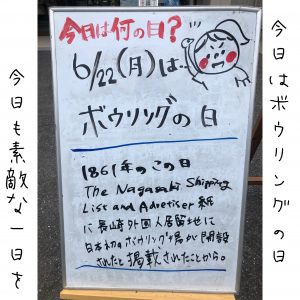 今日はボウリングの日
今日は何の日？
6/22(月)は
ボウリングの日
1861年のこの日
The Nagasaki Shipping
List and Advertiser 紙
に長崎外国人居留地に
日本初のボウリング場が開設
されたと掲載されたことから。
今日も素敵な一日を